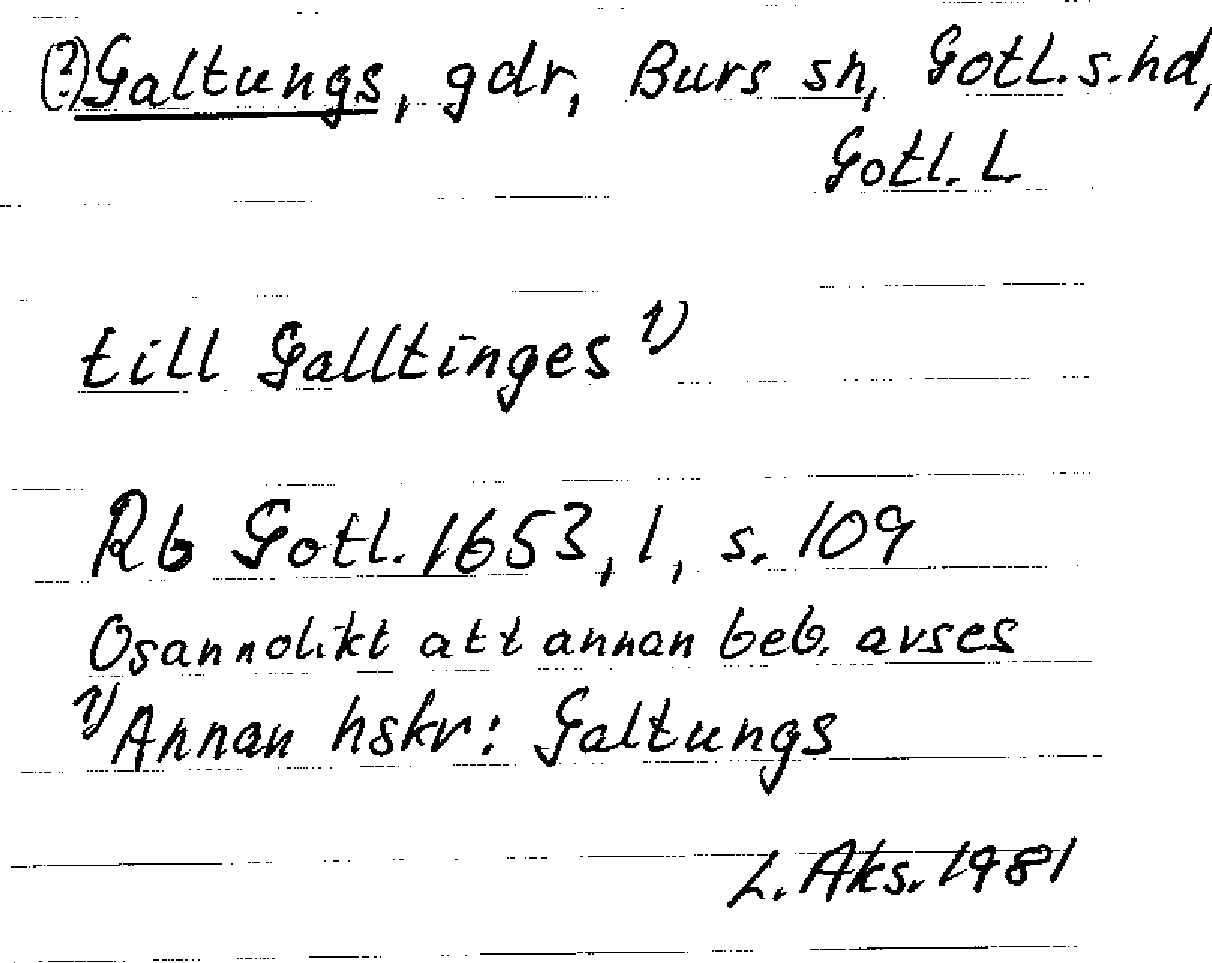 (?) Galtungs, gdr, Burs sn, Gotl.s.hd,
Gotl. L.
till Galltinges 1)
Rb Gotl. 1653, 1, s. 109
Osannolikt att annan beb. avses
1) Annan hskr: Galtungs
L. Aks. 1981